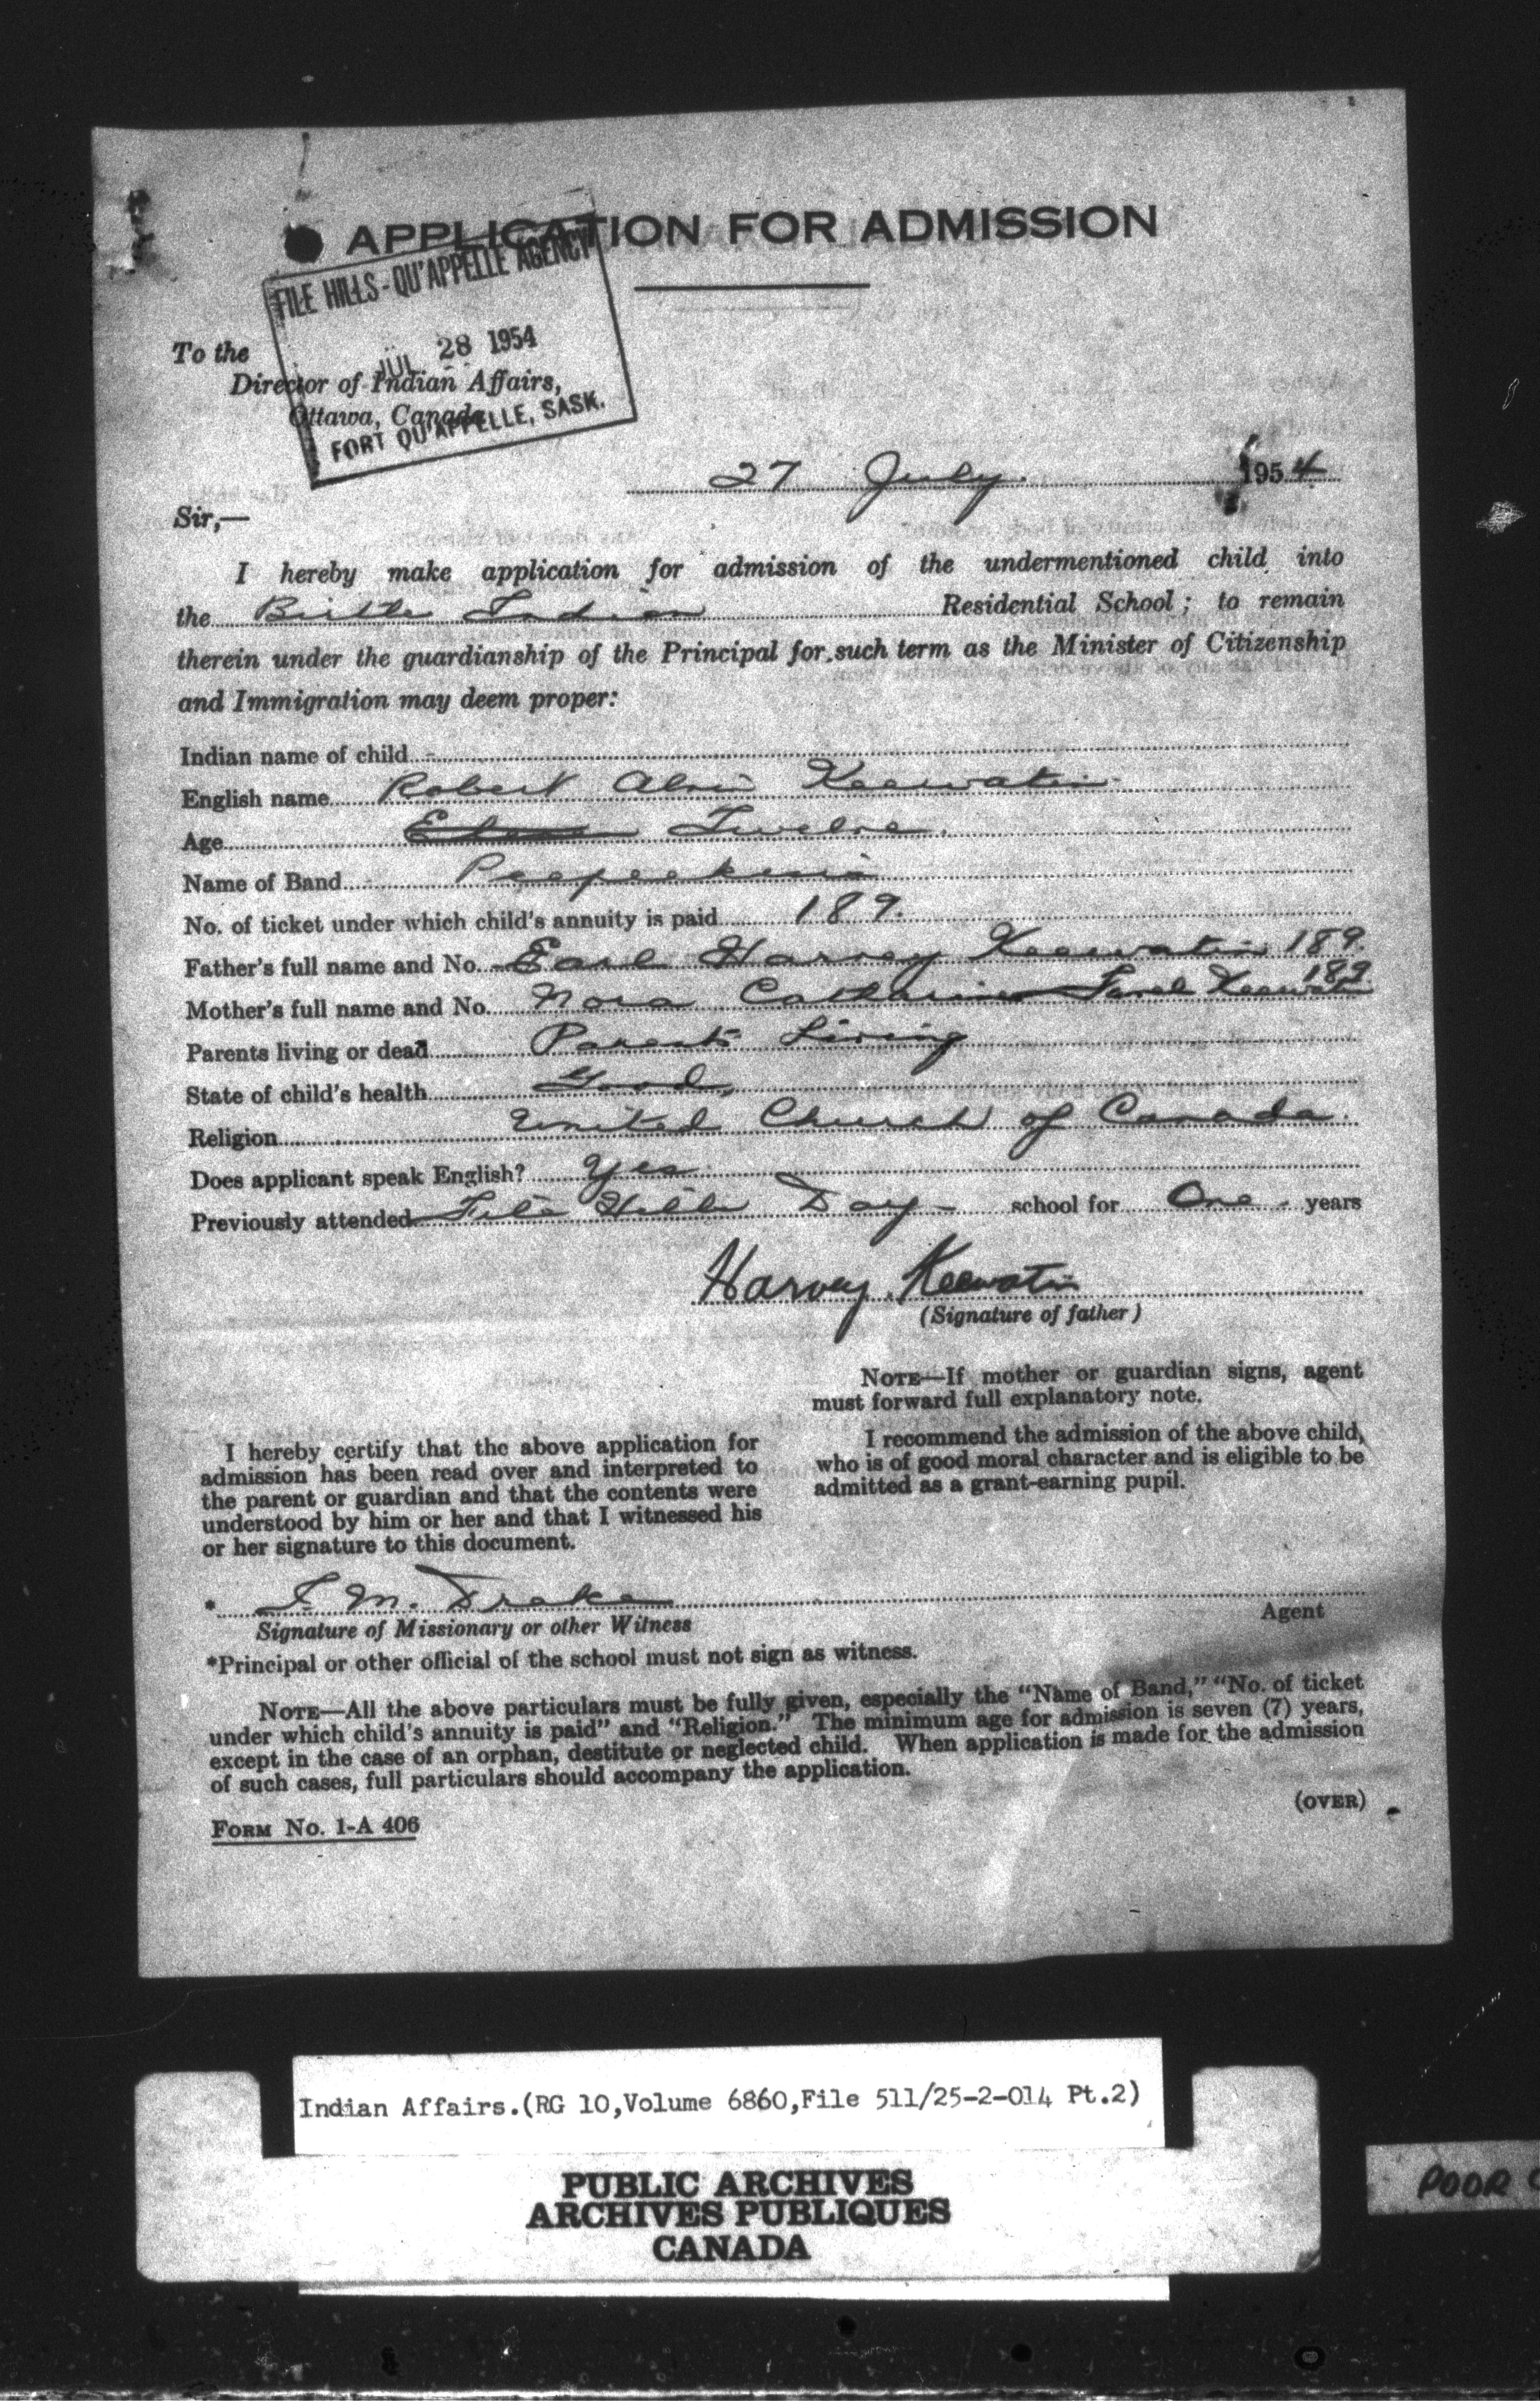 APPLICATION FOR ADMISSION
FILE HILLS - QU'APPELLE AGENCY
JUL 28 1954
FORT QU'APPELLE, SASK.
To the
Director of Indian Affairs,
Ottawa, Canada
27 July 1954
Sir,—
I hereby make application for admission of the undermentioned child into
the Birtle Indian Residential School; to remain
therein under the guardianship of the Principal for such term as the Minister of Citizenship
and Immigration may deem proper:
Indian name of child -
English name Robert Alvin Keewatin
Age Twelve.
Name of Band Peepeekisis
No. of ticket under which child's annuity is paid 189.
Father's full name and No. Earl Harvey Keewatin 189.
Mother's full name and No. Nora Catharine Keewatin 189
Parents living or dead Parents Living
State of child's health Good,
Religion United Church of Canada.
Does applicant speak English? Yes
Previously attended File Hills Day - school for One - years
Harvey Keewatin
(Signature of father)
NOTE—If mother or guardian signs, agent
must forward full explanatory note.
I hereby certify that the above application for
admission has been read over and interpreted to
the parent or guardian and that the contents were
understood by him or her and that I witnessed his
or her signature to this document.
I recommend the admission of the above child,
who is of good moral character and is eligible to be
admitted as a grant-earning pupil.
* F. M. Drake
Signature of Missionary or other Witness
Agent
*Principal or other official of the school must not sign as witness.
NOTE—All the above particulars must be fully given, especially the "Name of Band," "No. of ticket
under which child's annuity is paid" and "Religion." The minimum age for admission is seven (7) years,
except in the case of an orphan, destitute or neglected child. When application is made for the admission
of such cases, full particulars should accompany the application.
(OVER)
FORM No. 1-A 406
Indian Affairs.(RG 10,Volume 6860,File 511/25-2-014 Pt.2)
PUBLIC ARCHIVES
ARCHIVES PUBLIQUES
CANADA
POOR